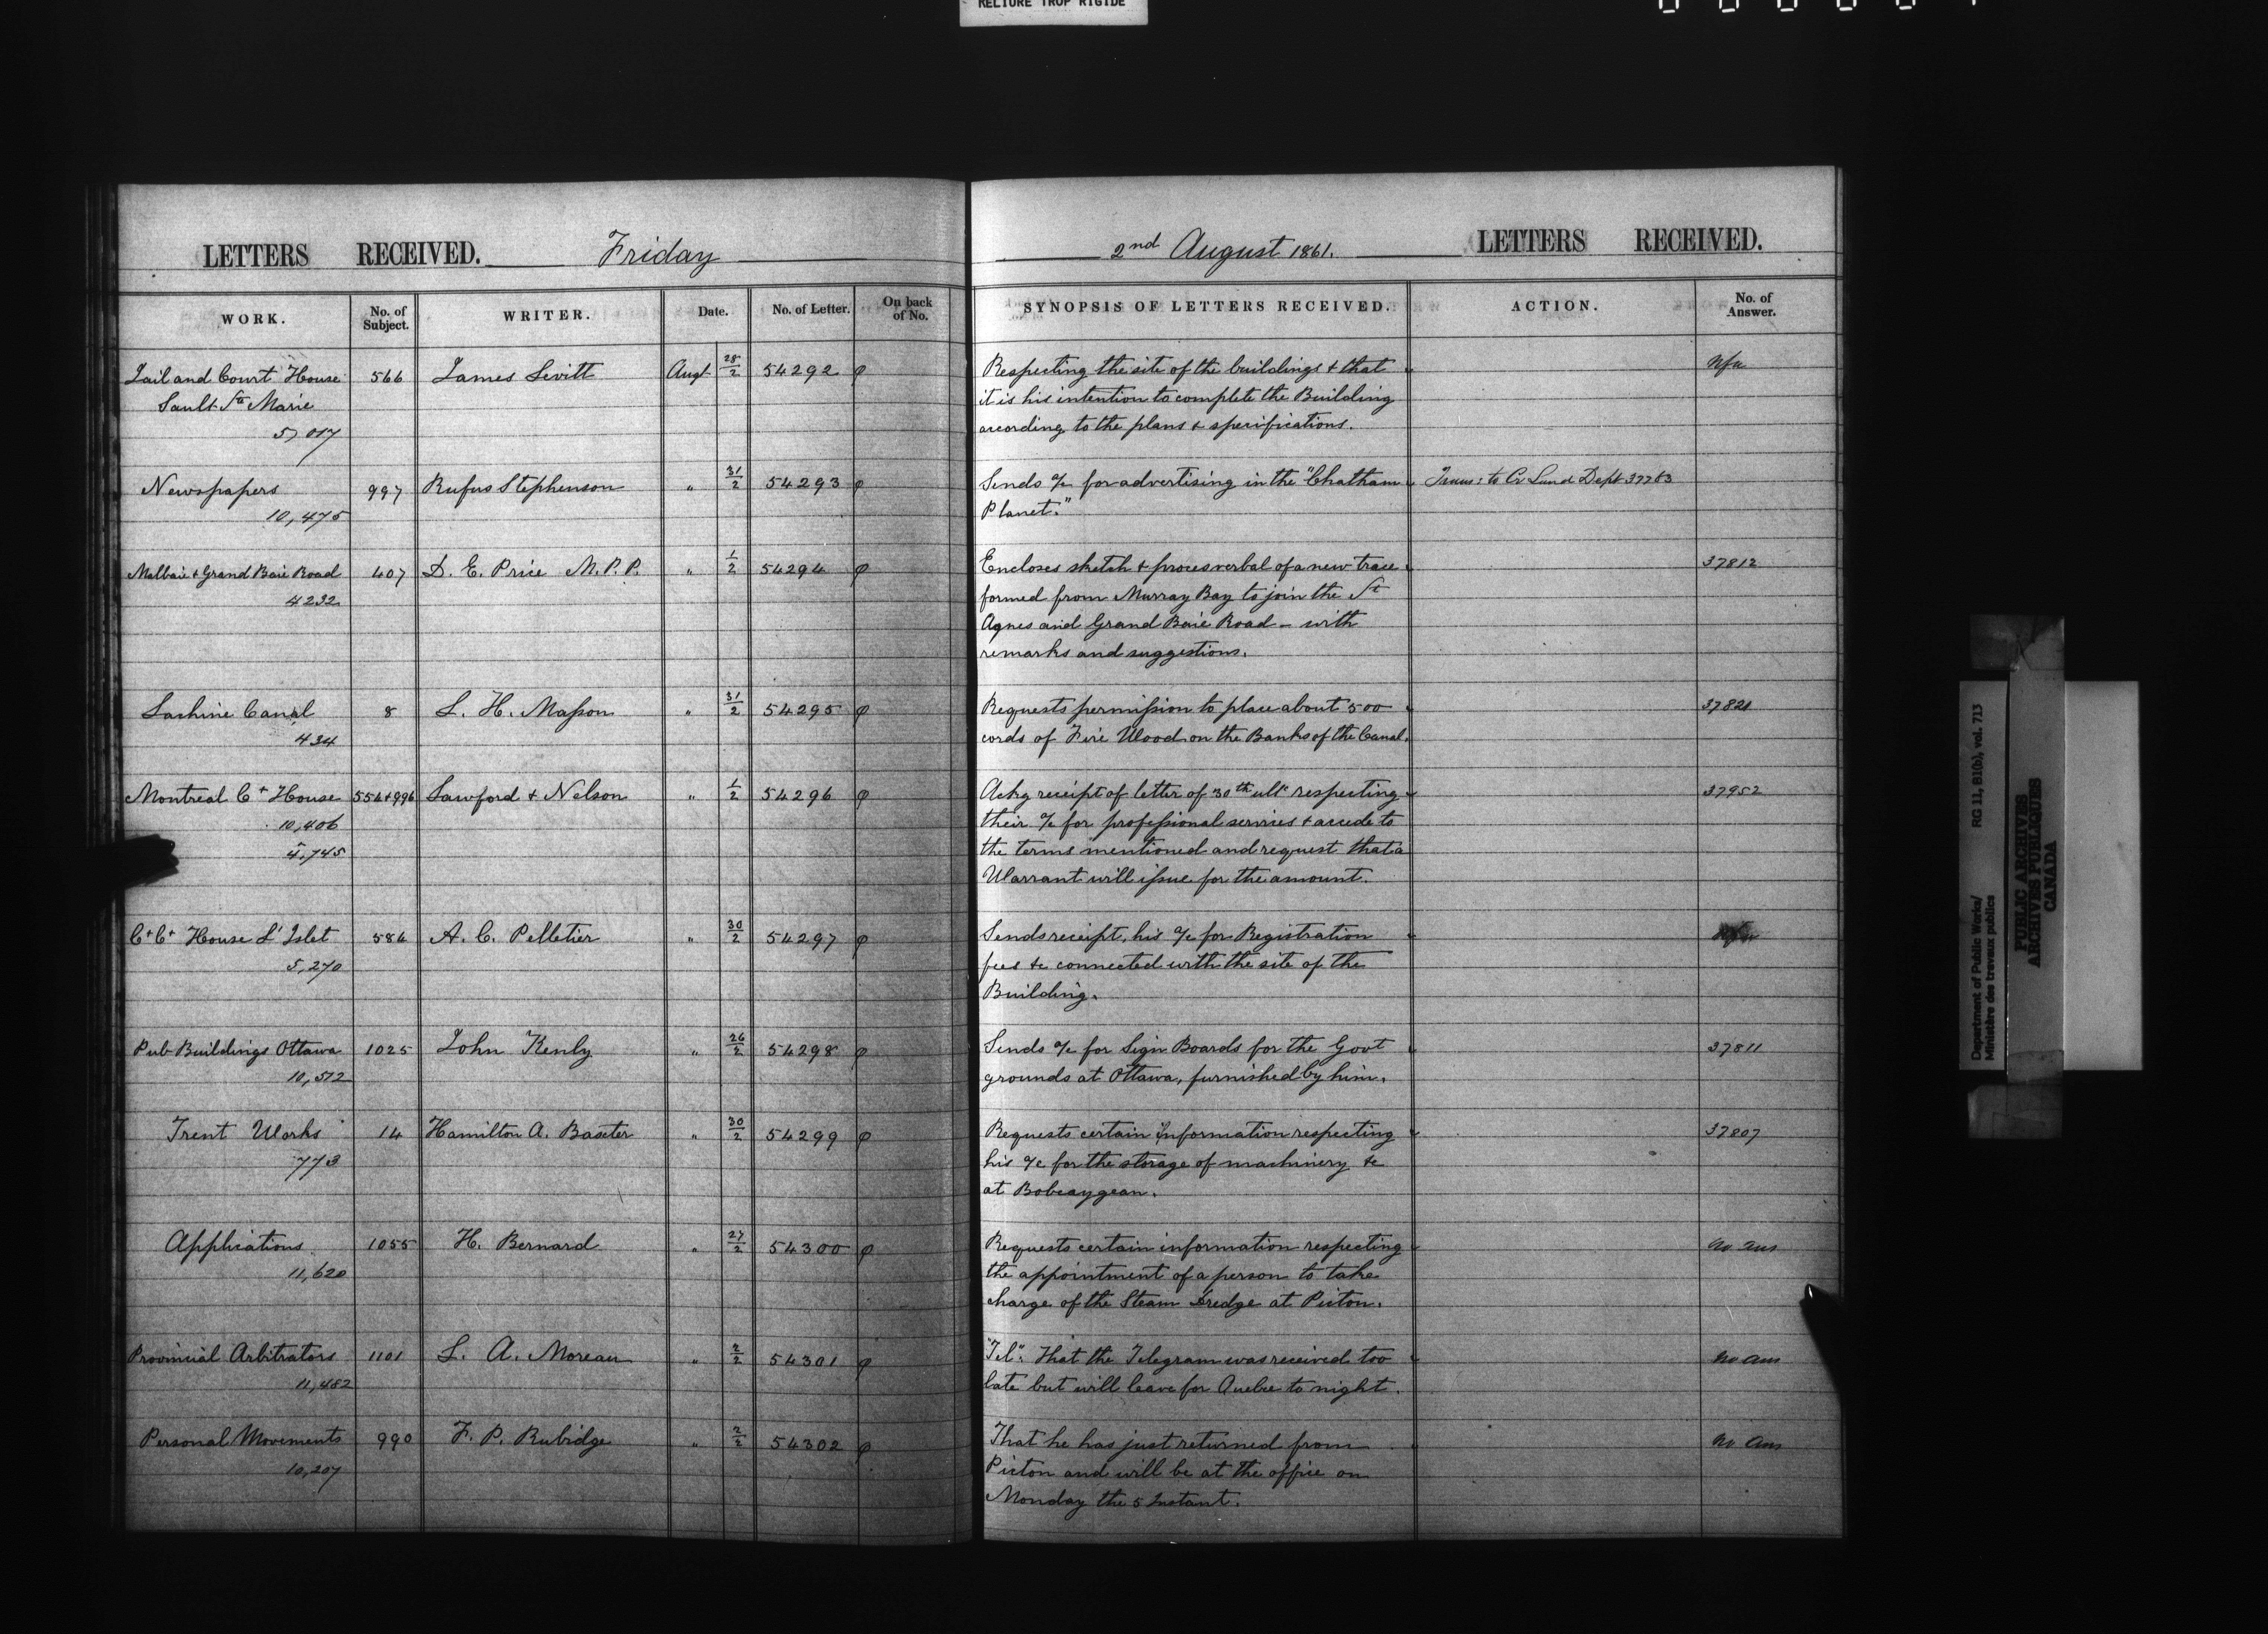 RELIURE TROP RIGIDE
LETTERS RECEIVED. Friday
2nd August 1861. LETTERS RECEIVED.
WORK. No. of Subject. WRITER. Date. No. of Letter. On back of No.
SYNOPSIS OF LETTERS RECEIVED. ACTION. No. of Answer.
Jail and Court House 566 James Levitt Augt 28/2 54292 φ
Sault Ste Marie
5,017
Respecting the site of the buildings & that
it is his intention to complete the Building
according to the plans & specifications.
Newspapers 997 Rufus Stephenson " 31/2 54293 φ
10,475
Sends a/c for advertising in the "Chatham Trans: to Cr Land Dept 37763
Planet."
Malbaie & Grand Baie Road 407 D. E. Price M.P.P. " 1/2 54294 φ
4232
Encloses sketch & procesverbal of a new trace 37812
formed from Murray Bay to join the St
Agnes and Grand Baie Road - with
remarks and suggestions.
Lachine Canal 8 L. H. Masson " 31/2 54295 φ
434
Requests permission to place about 500 37821
cords of Fire Wood on the Banks of the Canal.
Montreal Ct House 554+996 Lawford & Nelson " 1/2 54296 φ
10,406
4,745
Ackg receipt of letter of "30th ult" respecting 37952
their a/c for professional services & accede to
the terms mentioned and request that a
Warrant will issue for the amount.
Ct Ct House L'Islet 584 A. C. Pelletier " 30/2 54297 φ
5,270
Sends receipt, his a/c for Registration
fees &c connected with the site of the
Building.
Pub Buildings Ottawa 1025 John Kenly " 26/2 54298 φ
10,512
Sends a/c for Sign Boards for the Govt 37811
grounds at Ottawa, furnished by him.
Trent Works 14 Hamilton A. Baxter " 30/2 54299 φ
773
Requests certain information respecting 37807
his a/c for the storage of machinery &c
at Bobcaygean.
Applications 1055 H. Bernard " 27/2 54300 φ
11,620
Requests certain information respecting no ans
the appointment of a person to take
charge of the Steam Dredge at Picton.
Provincial Arbitrators 1101 L. A. Moreau " 2/2 54301 φ
11,482
"Tel". That the Telegram was received too no ans
late but will leave for Quebec to night.
Personal Movements 990 F. P. Rubidge " 2/2 54302 φ
10,207
That he has just returned from no ans
Picton and will be at the office on
Monday the 5 Instant.
Department of Public Works/ RG 11, B1(b), vol. 713
Ministère des travaux publics
PUBLIC ARCHIVES
ARCHIVES PUBLIQUES
CANADA